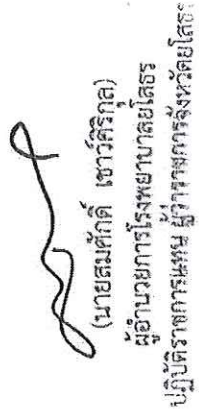 (นายสมศักดิ์ เชาว์ศิริกุล)
ผู้อำนวยการโรงพยาบาลยโสธร
ปฏิบัติราชการแทน ผู้ว่าราชการจังหวัดยโสธร